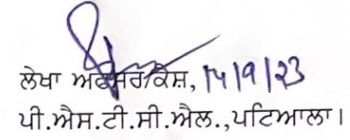 ਲੇਖਾ ਅਫਸਰ/ਕੈਸ਼, 14/9/23
ਪੀ.ਐਸ.ਟੀ.ਸੀ.ਐਲ.,ਪਟਿਆਲਾ।